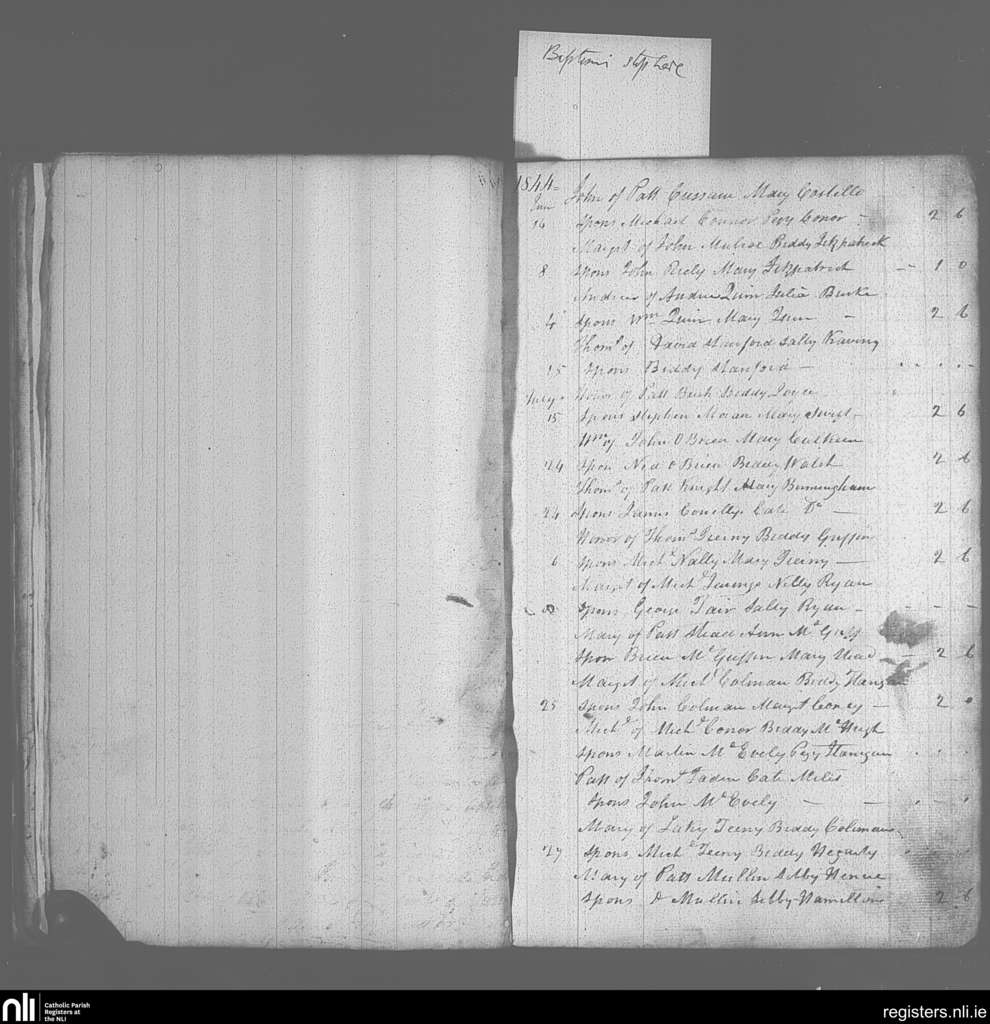 Baptisms stop here
1844
June John of Patt Mary Costello
14 Spons Michael Connor Pegy Conor - 2 6
Margt of John Mulroe Biddy Fitzpatrick
8 Spons John Riely Mary Fitzpatrick - 1 0
Andrew of Andrew Quin Julia Burke
4 Spons Wm Quin Mary Quin - 2 6
Thoms of David Stanford Sally
15 Spons Biddy Stanford -
July Honor of Patt Biddy Joyce
15 Spons Stephen Moran Mary Swift - 2 6
Wm of John O Brien Mary
24 Spon Ned O Brien Biddy Walsh 2 6
Thoms of Patt Knight Mary Birmingham
24 Spons James Conelly Cate Do - 2 6
Honor of Thoms Feeny Biddy Griffin
6 Spons Michl Nally Mary Feeny - 2 6
Margt of Michl Nelly Ryan
Spons George Fair Sally Ryan -
Mary of Patt Ann Mc
Spon Brien Mc Mary - 2 6
Margt of Michl Colman Biddy
25 Spons John Colman Margt Coney - 2
Michl of Michl Conor Biddy Mc Hugh
Spons Martin Mc Evely Pegy Flanigan
Patt of Cate Miles
Spons John Mc Evely -
Mary of Luky Feeny Biddy Coleman
27 Spons Michl Feeny Biddy Hegarty
Mary of Patt Mullin Sibby
Spons Mullin Sibby Hamilton 2 6
nli Catholic Parish
Registers at
the NLI
registers.nli.ie